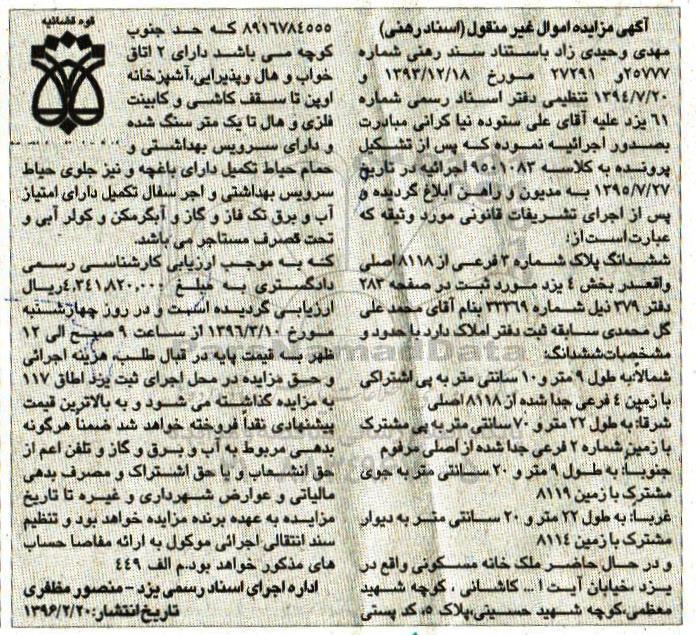 آگهی مزایده اموال غیر منقول (اسناد رهنی)
مهدی وحیدی زاد باستناد سند رهنی شماره
۲۵۷۷۷و ۲۷۲۹۱ مورخ ۱۳۹۳/۱۲/۱۸ و
۱۳۹٤/۷/۲۰ تنظیمی دفتر اسناد رسمی شماره
٦۱ یزد علیه آقای علی ستوده نیا کرانی مبادرت
بصدور اجرائیه نموده که پس از تشکیل
پرونده به کلاسه ۹۵۰۱۰۸۳ اجرائیه در تاریخ
۱۳۹۵/۷/۲۷ به مدیون و راهن ابلاغ گردیده و
پس از اجرای تشریفات قانونی مورد وثیقه که
عبارت است از:
ششدانگ پلاک شماره ۳ فرعی از ۸۱۱۸ اصلی
واقعدر بخش ٤ یزد مورد ثبت در صفحه ۲۸۳
دفتر ۳۷۹ ذیل شماره ۳۳۳٦۹ بنام آقای محمد علی
گل محمدی سابقه ثبت دفتر املاک دارد با حدود و
مشخصات ششدانگ:
شمالاً:به طول ۹ متر و ۱۰ سانتی متر به پی اشتراکی
با زمین ٤ فرعی جدا شده از ۸۱۱۸ اصلی
شرقاً: به طول ۲۲ متر و ۷۰ سانتی متر به پی مشترک
با زمین شماره ۲ فرعی جدا شده از اصلی مرقوم
جنوباً: به طول ۹ متر و ۲۰ سانتی متر به جوی
مشترک با زمین ۸۱۱۹
غرباً: به طول ۲۲ متر و ۲۰ سانتی متر به دیوار
مشترک با زمین ۸۱۱٤
و در حال حاضر ملک خانه مسکونی واقع در
یزد ،خیابان آیت ا... کاشانی ، کوچه شهید
معظمی،کوچه شهید حسینی،پلاک ۵، کد پستی
قوه قضائیه
۸۹۱٦۷۸٤۵۵۵ که حد جنوب
کوچه می باشد دارای ۲ اتاق
خواب و هال وپذیرایی،آشپزخانه
اوپن تا سقف کاشی و کابینت
فلزی و هال تا یک متر سنگ شده
و دارای سرویس بهداشتی و
حمام حیاط تکمیل دارای باغچه و نیز جلوی حیاط
سرویس بهداشتی و اجر سفال تکمیل دارای امتیاز
آب و برق تک فاز و گاز و آبگرمکن و کولر آبی و
تحت تصرف مستاجر می باشد.
که به موجب ارزیابی کارشناسی رسمی
دادگستری به مبلغ ٤،۳٤۱،۸۲۰،۰۰۰ریال
ارزیابی گردیده است و در روز چهارشنبه
مورخ ۱۳۹٦/۳/۱۰ از ساعت ۹ صبح الی ۱۲
ظهر به قیمت پایه در قبال طلب، هزینه اجرائی
و حق مزایده در محل اجرای ثبت یزد اطاق ۱۱۷
به مزایده گذاشته می شود و به بالاترین قیمت
پیشنهادی نقداً فروخته خواهد شد ضمناً هرگونه
بدهی مربوط به آب و برق و گاز و تلفن اعم از
حق انشعاب و یا حق اشتراک و مصرف بدهی
مالیاتی و عوارض شهرداری و غیره تا تاریخ
مزایده به عهده برنده مزایده خواهد بود و تنظیم
سند انتقالی اجرائی موکول به ارائه مفاصا حساب
های مذکور خواهد بود.م الف ٤٤۹
اداره اجرای اسناد رسمی یزد - منصور مظفری
تاریخ انتشار:۱۳۹٦/۲/۲۰
ParsNamadData